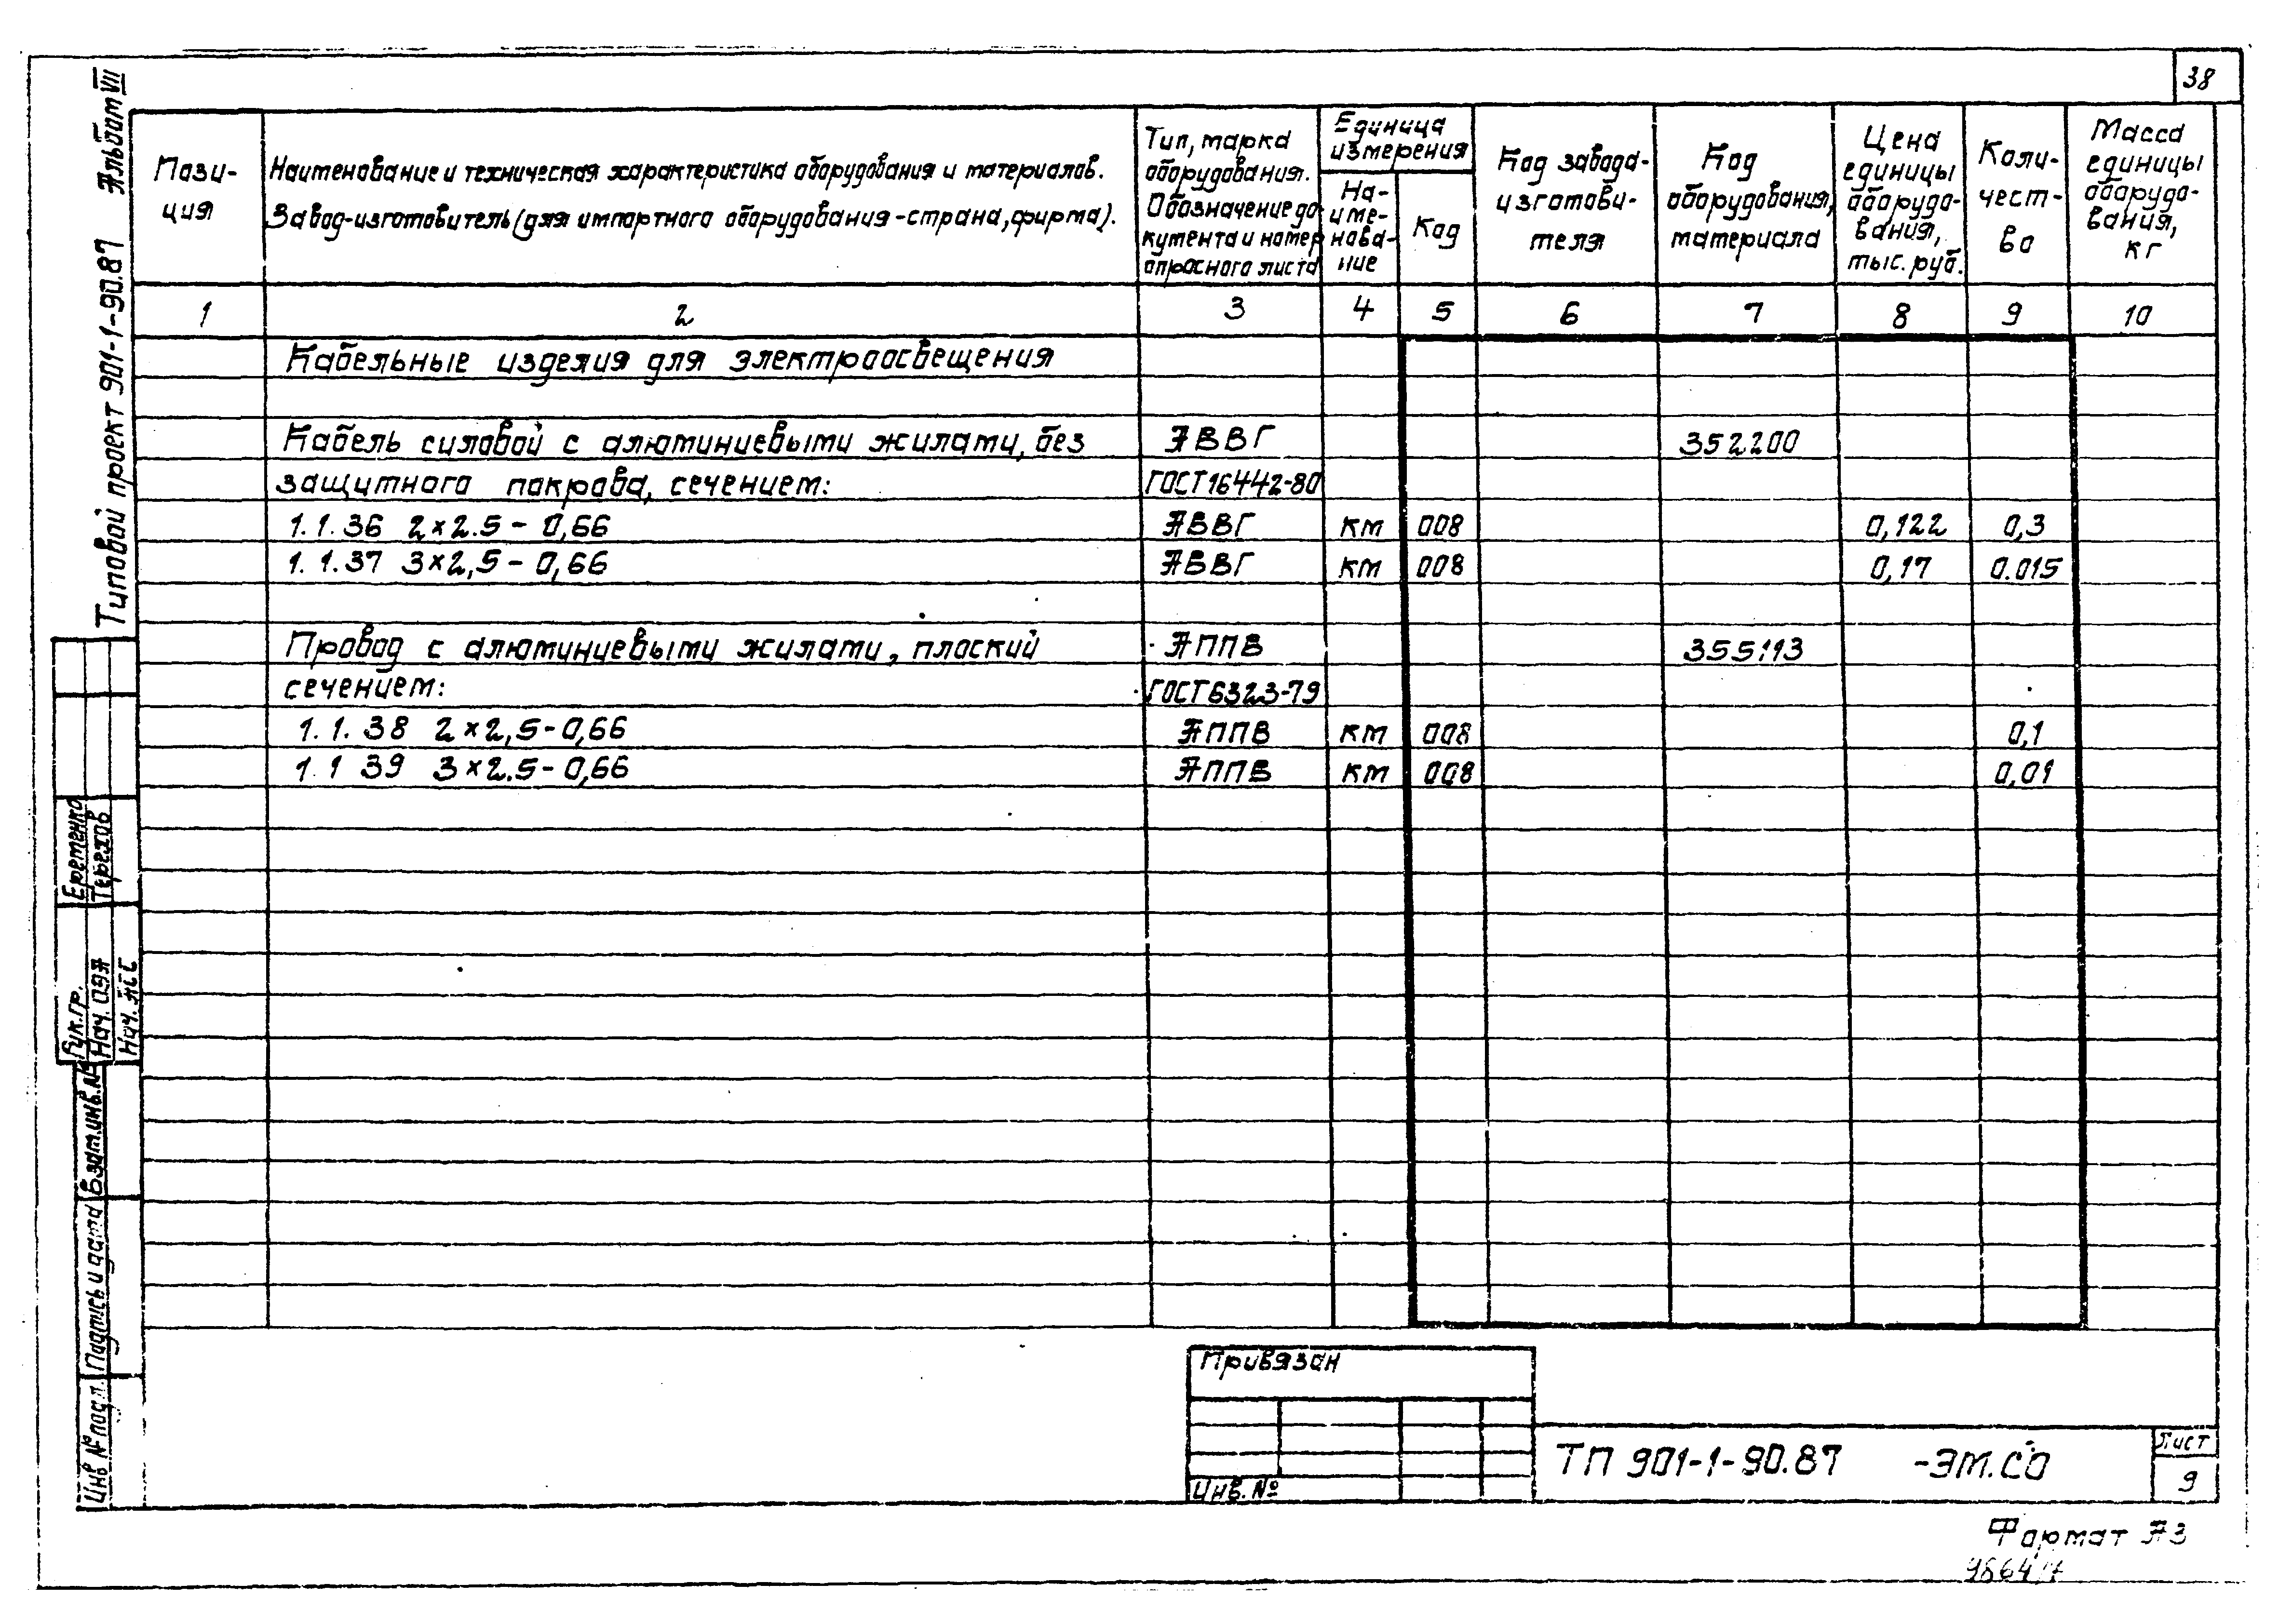 38
Типовой проект 901-1-90.87 Альбом VII
Пози-
ция
Наименование и техническая характеристика оборудования и материалов.
Завод-изготовитель (для импортного оборудования-страна, фирма).
Тип, марка
оборудования.
Обозначение до-
кумента и номер
опросного листа
Единица
измерения
На-
име-
нова-
ние
Код
Код завода-
изготови-
теля
Код
оборудования,
материала
Цена
единицы
оборудо-
вания,
тыс. руб.
Коли-
чест-
во
Масса
единицы
оборудо-
вания,
кг
1 2 3 4 5 6 7 8 9 10
Кабельные изделия для электроосвещения
Кабель силовой с алюминиевыми жилами, без АВВГ 352200
защитного покрова, сечением: ГОСТ 16442-80
1.1.36 2×2.5-0,66 АВВГ км 008 0,122 0,3
1.1.37 3×2,5-0,66 АВВГ км 008 0,17 0.015
Провод с алюминиевыми жилами, плоский АППВ 355113
сечением: ГОСТ 6323-79
1.1.38 2×2,5-0,66 АППВ км 008 0,1
1.1 39 3×2.5-0,66 АППВ км 008 0,01
Еременко
Терехов
Рук.гр.
Нач. ОЭА
Нач. АСС
Взам.инв.№
Подпись и дата
Инв № подл.
Привязан
Инв. №
ТП 901-1-90.87 -ЭМ.СО
Лист
9
Формат А3